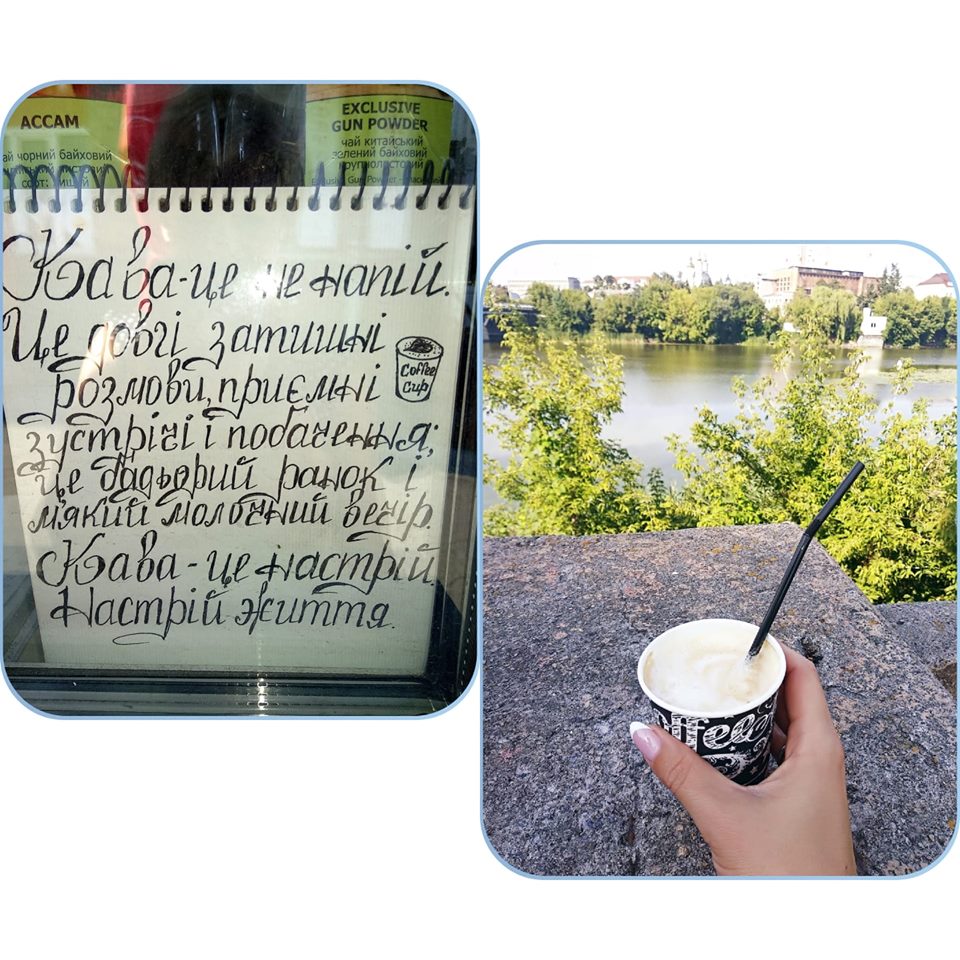 АССАМ
чай чорний байховий
сорт: вищий
EXCLUSIVE
GUN POWDER
чай китайський
зелений байховий
крупнолистовий
Кава-це не напій.
Це довгі затишні
розмови, приємні
зустрічі і побачення;
це бадьорий ранок і
м'який молочний вечір.
Кава - це настрій.
Настрій життя.
Coffee
Cup
Coffee